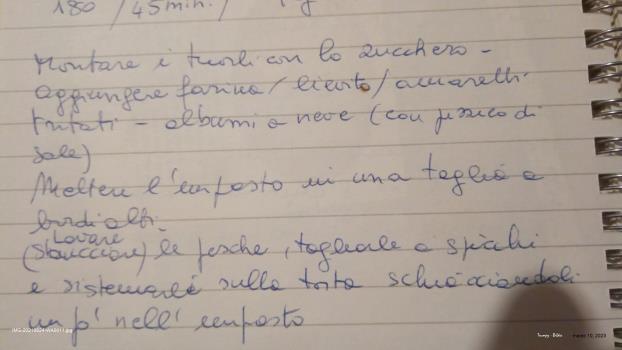 180 / 45 min. /
Montare i tuorli con lo zucchero -
aggiungere farina / lievito / amaretti
tritati - albumi a neve (con pizzico di
sale)
Mettere l'impasto in una teglia a
bordi alti.
Lavare
(sbucciare) le pesche, tagliarle a spicchi
e sistemarle sulla torta schiacciandoli
un po' nell'impasto